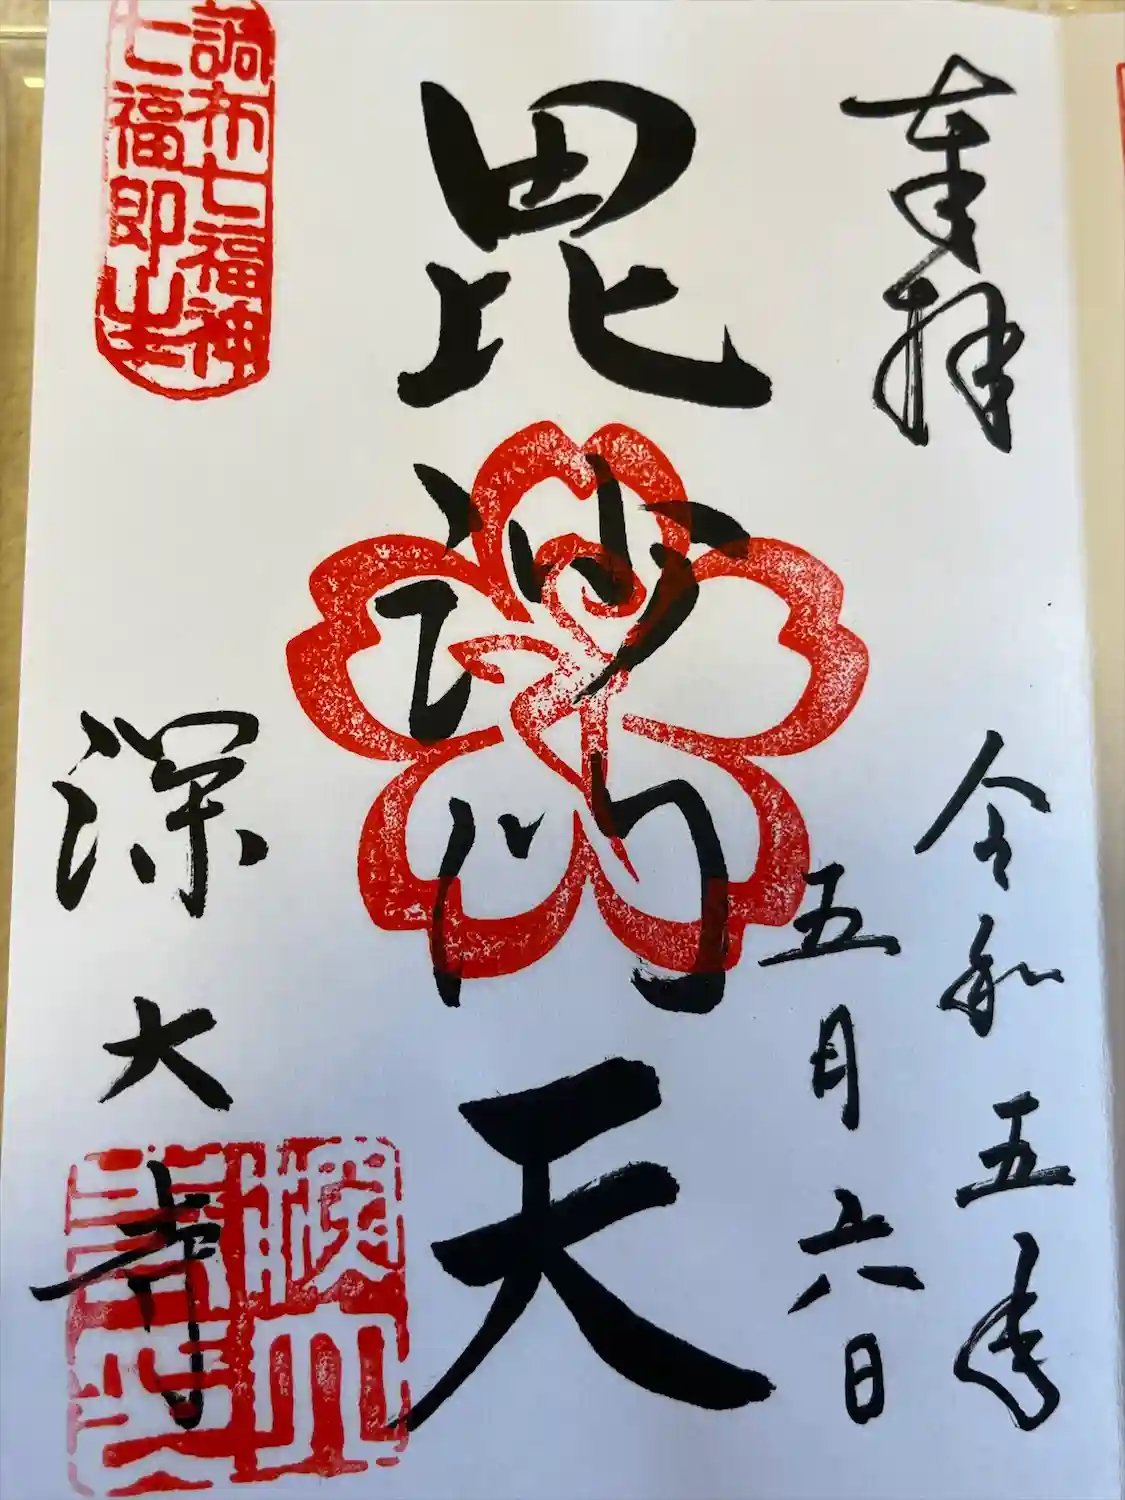 奉拝
令和五年
五月六日
毘沙門天
調布七福神
七福即生
深大寺